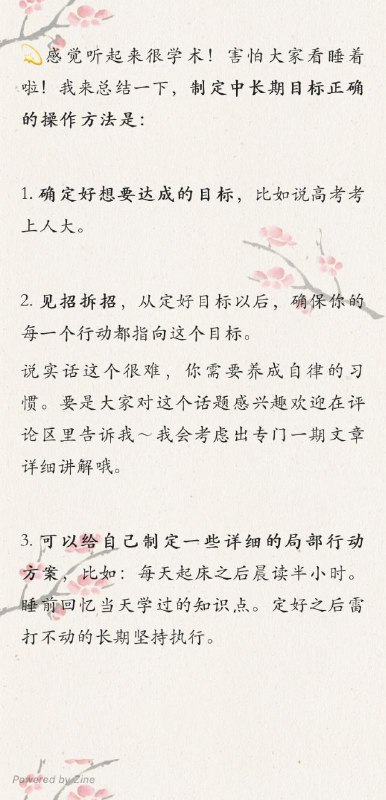 💫感觉听起来很学术！害怕大家看睡着
啦！我来总结一下，制定中长期目标正确
的操作方法是：
1. 确定好想要达成的目标，比如说高考考
上人大。
2. 见招拆招，从定好目标以后，确保你的
每一个行动都指向这个目标。
说实话这个很难，你需要养成自律的习
惯。要是大家对这个话题感兴趣欢迎在评
论区里告诉我～我会考虑出专门一期文章
详细讲解哦。
3. 可以给自己制定一些详细的局部行动
方案，比如：每天起床之后晨读半小时。
睡前回忆当天学过的知识点。定好之后雷
打不动的长期坚持执行。
Powered by Zine